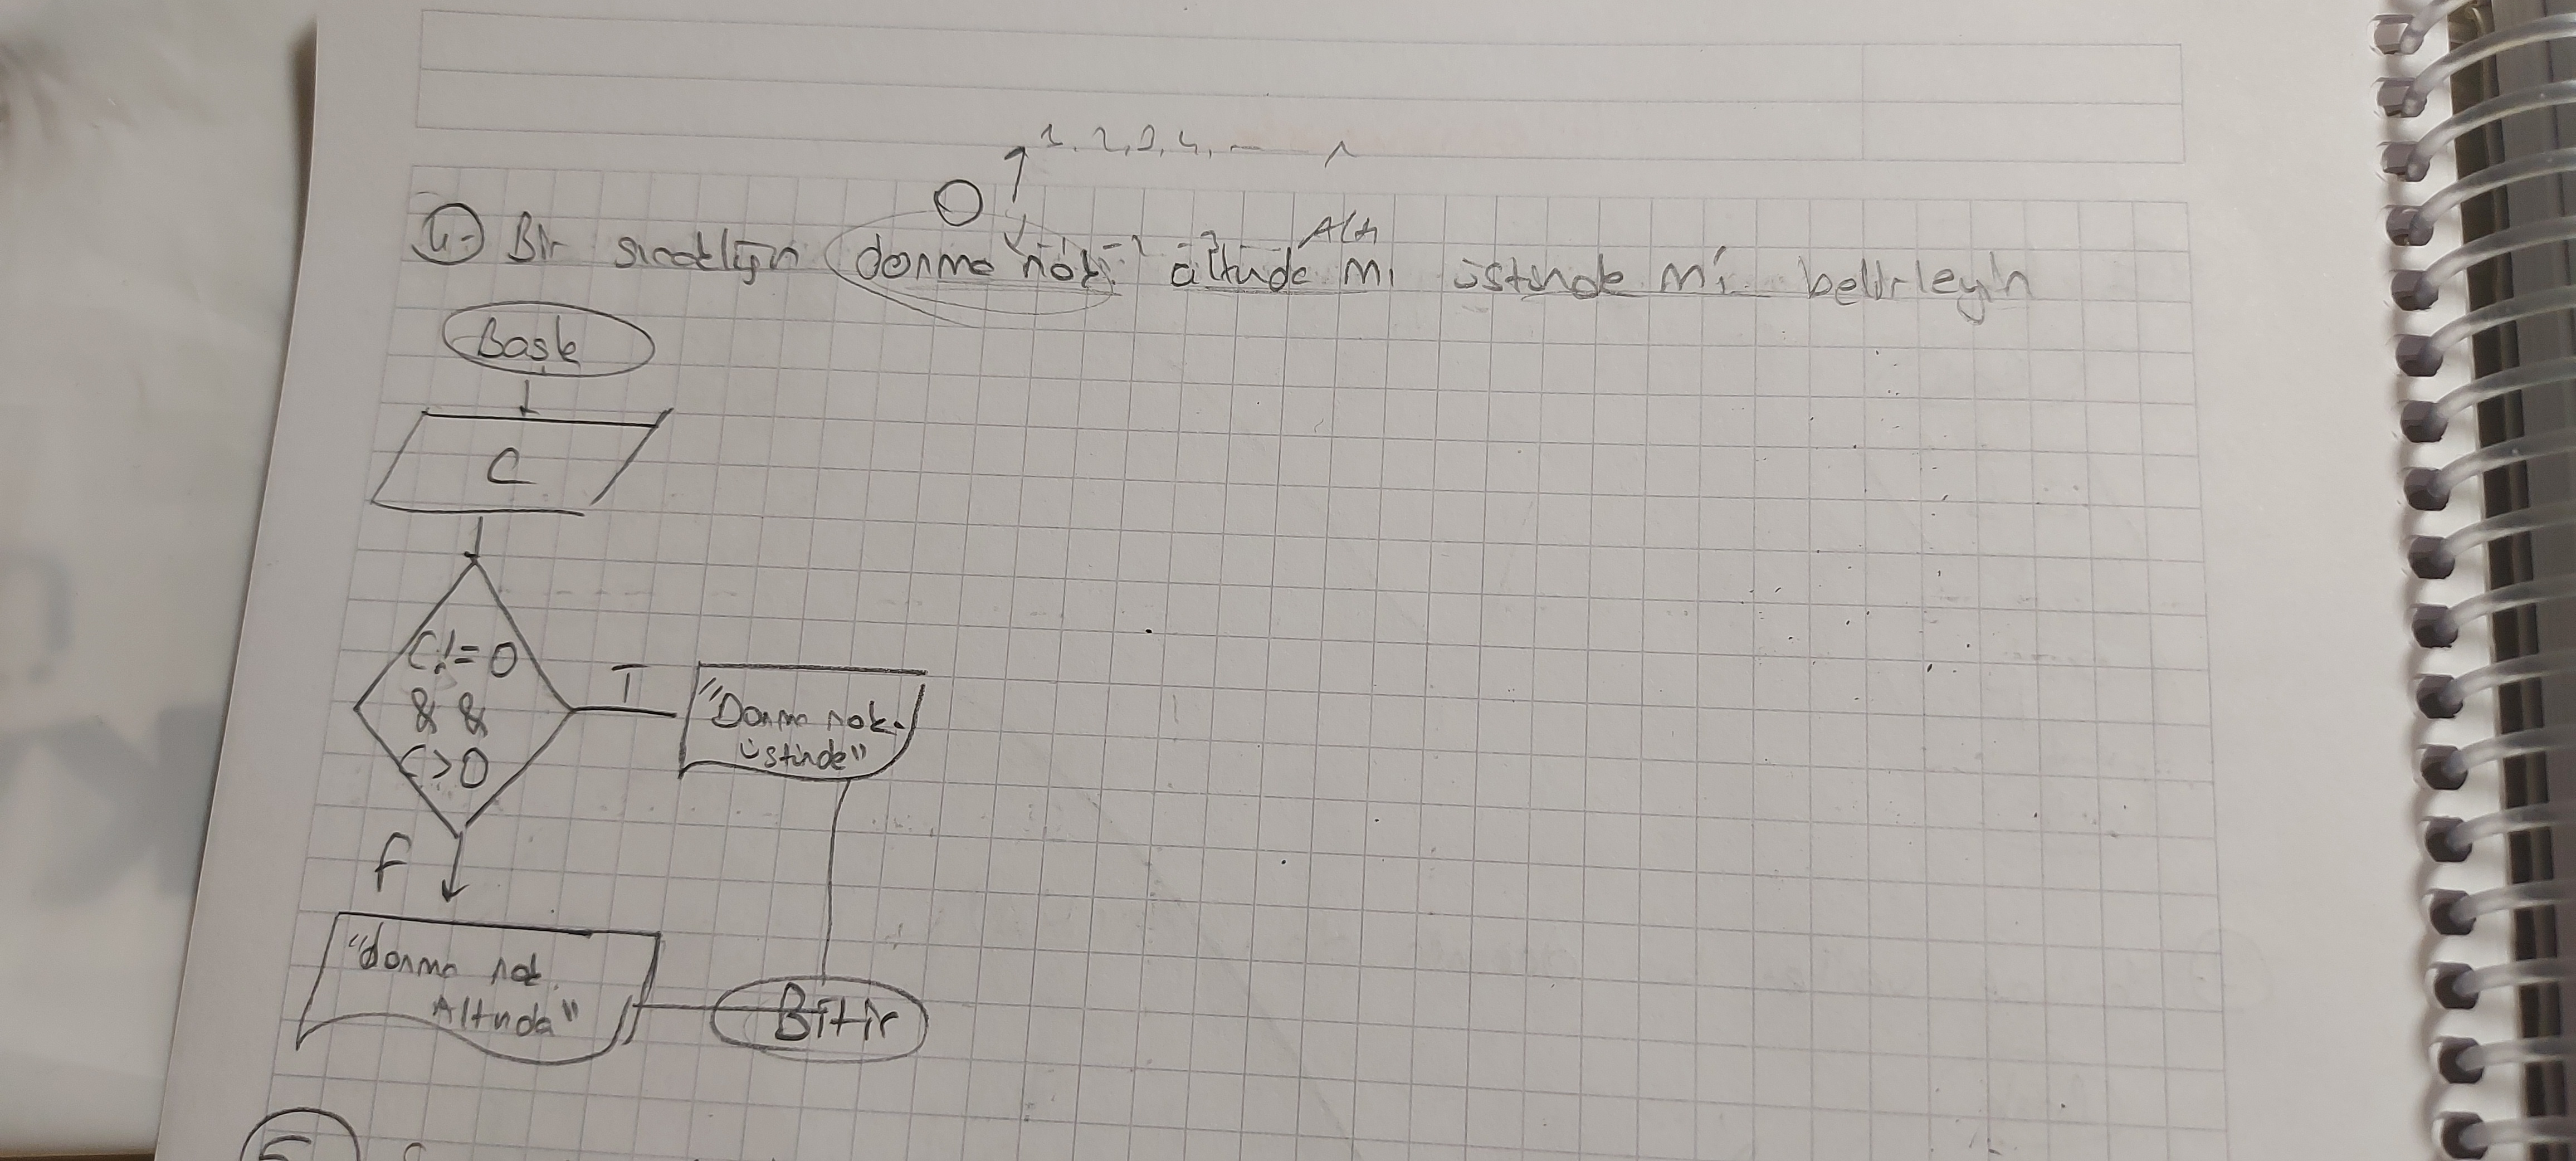 1, 2, 3, 4, -- n
0
-1 -2 -- Altı
4-) Bir sıcaklığın donma nok. altında mı üstünde mi belirleyin
Başla
C
C!=0
&&
C>0
T
"Donma nok.
üstünde"
F
"donma nok.
Altında"
Bitir